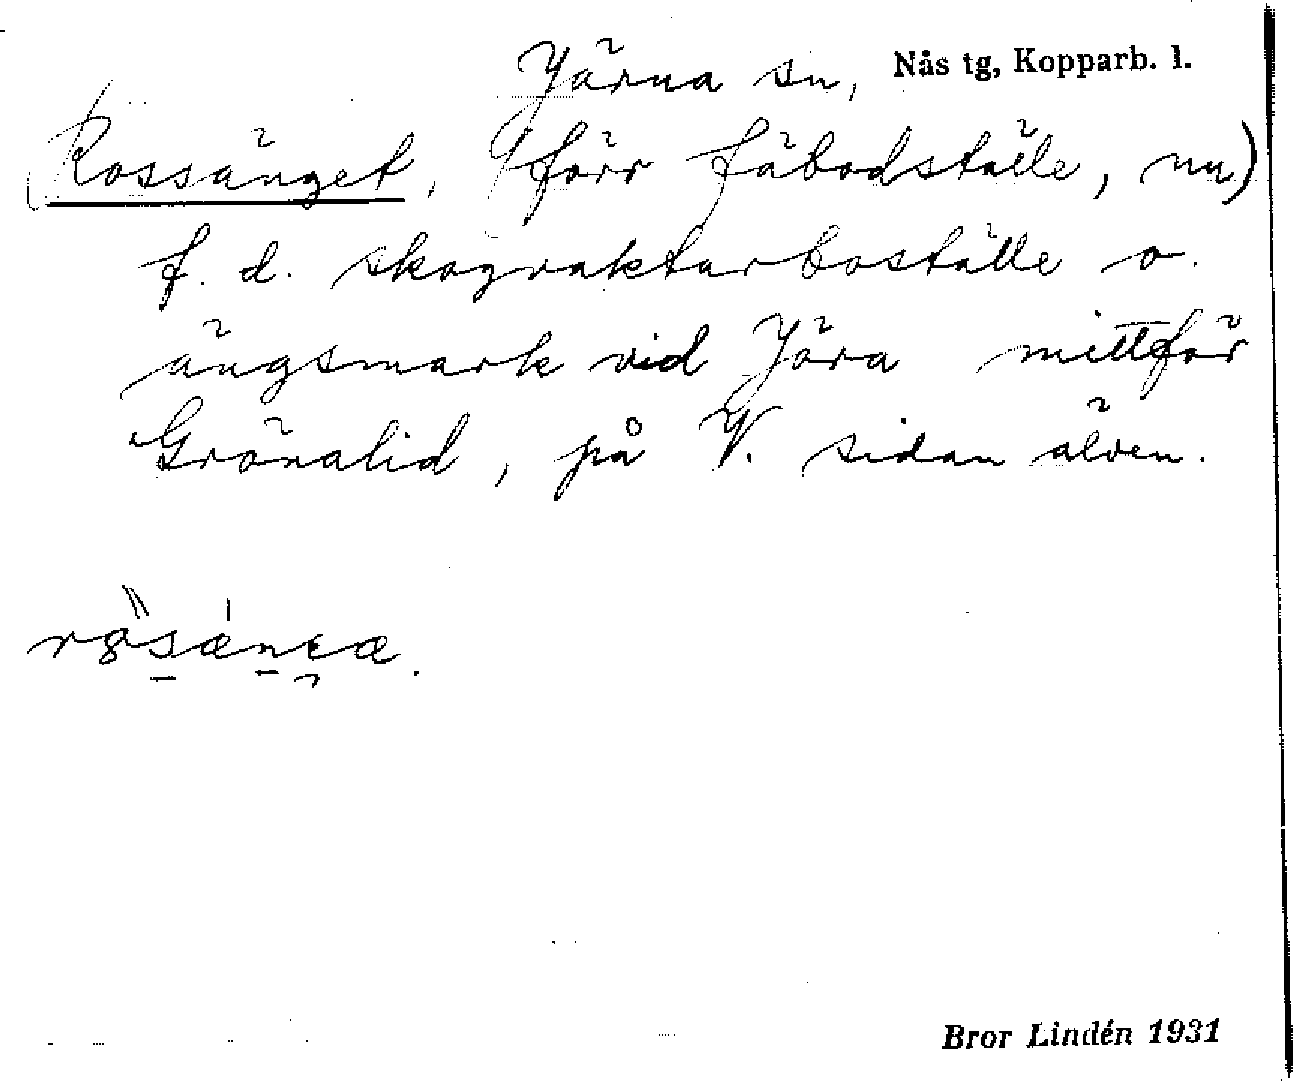 Järna sn, Nås tg, Kopparb. l.
Rossänget, (förr fäbodställe, nu)
f. d. skogvaktarboställe o.
ängsmark vid Jöra mittför
Grönalid, på V. sidan älven.
Bror Lindén 1931